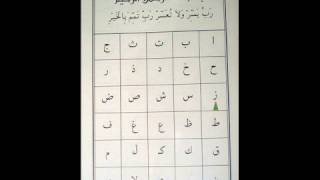 رَبِّ يَسِّرْ وَلَا تُعَسِّرْ رَبِّ تَمِّمْ بِالْخَيْرِ
ا ب ت ث ج
ح خ د ذ ر
ز س ش ص ض
ط ظ ع غ ف
ق ك ک ل م